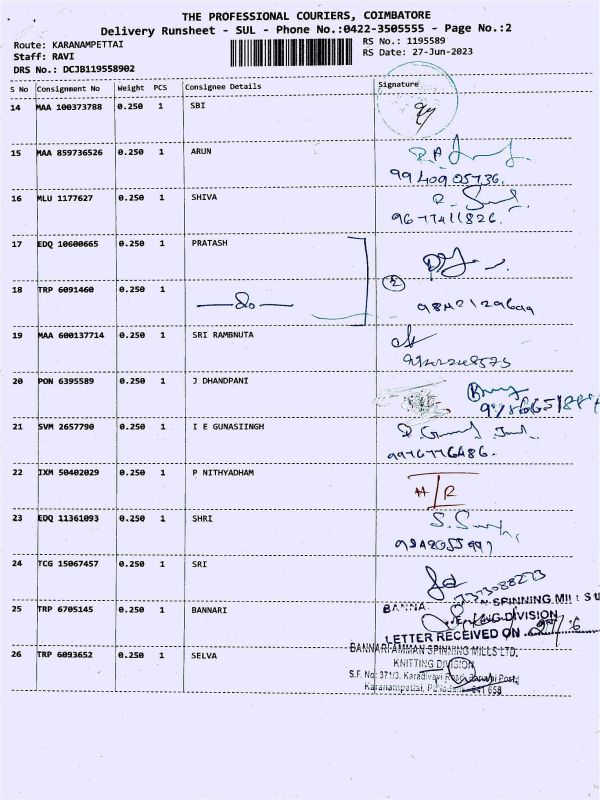 THE PROFESSIONAL COURIERS, COIMBATORE
Delivery Runsheet - SUL - Phone No.:0422-3505555 - Page No.:2
Route: KARANAMPETTAI
RS No.: 1195589
Staff: RAVI
RS Date: 27-Jun-2023
DRS No.: DCJB119558902
S No Consignment No Weight PCS Consignee Details Signature
14 MAA 100373788 0.250 1 SBI
15 MAA 859736526 0.250 1 ARUN
9940905736.
16 MLU 1177627 0.250 1 SHIVA
9677411826.
17 EDQ 10600665 0.250 1 PRATASH
18 TRP 6091460 0.250 1 —do— 2
19 MAA 600137714 0.250 1 SRI RAMBNUTA
20 PON 6395589 0.250 1 J DHANDPANI
21 SVM 2657790 0.250 1 I E GUNASIINGH
9976776486.
22 IXM 50402029 0.250 1 P NITHYADHAM
H/R
23 EDQ 11361093 0.250 1 SHRI
24 TCG 15067457 0.250 1 SRI
25 TRP 6705145 0.250 1 BANNARI
BANNA SPINNING MILLS
DIVISION
LETTER RECEIVED ON 27/6
26 TRP 6093652 0.250 1 SELVA
BANNARI AMMAN SPINNING MILLS LTD.
KNITTING DIVISION
S.F. No: 371/3. Karadivavi Road, Post,
Karanampatti, 641 658